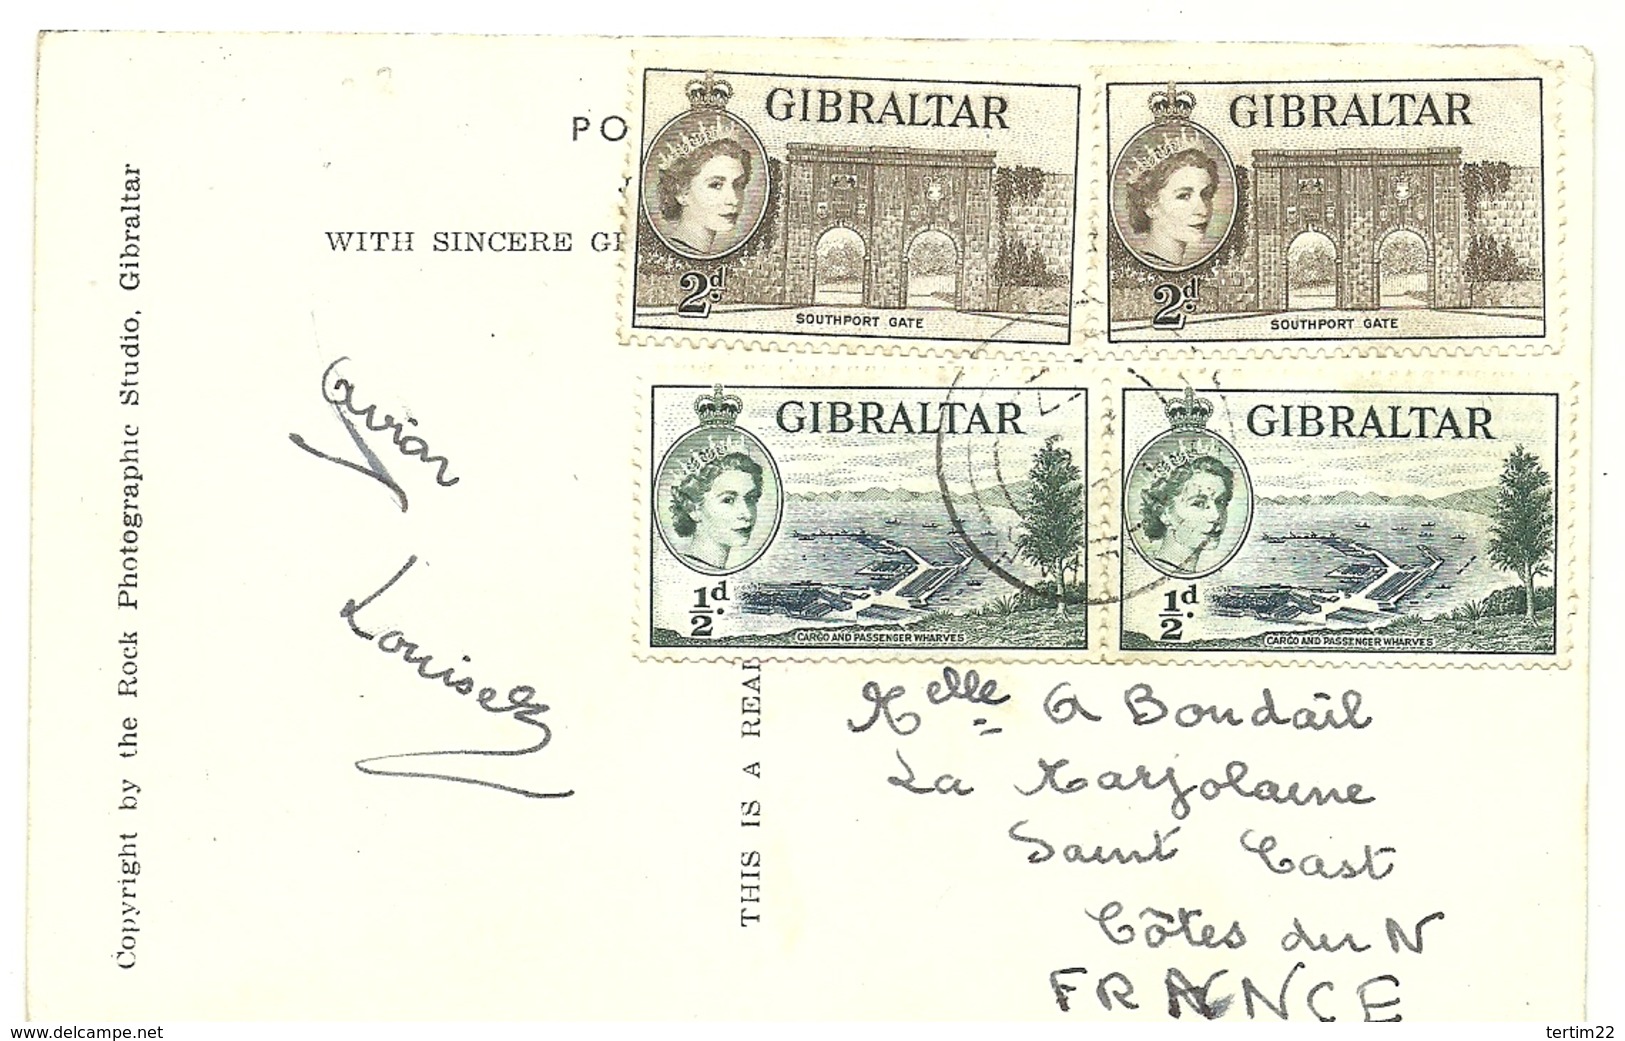 PO
WITH SINCERE GR
Copyright by the Rock Photographic Studio, Gibraltar
THIS IS A REAL
GIBRALTAR
2d.
SOUTHPORT GATE
GIBRALTAR
2d.
SOUTHPORT GATE
GIBRALTAR
½d.
CARGO AND PASSENGER WHARVES
GIBRALTAR
½d.
CARGO AND PASSENGER WHARVES
Louisely
Melle A Bondaïl
La Marjolaine
Saint Cast
Côtes du N
FRANCE
www.delcampe.net
tertim22